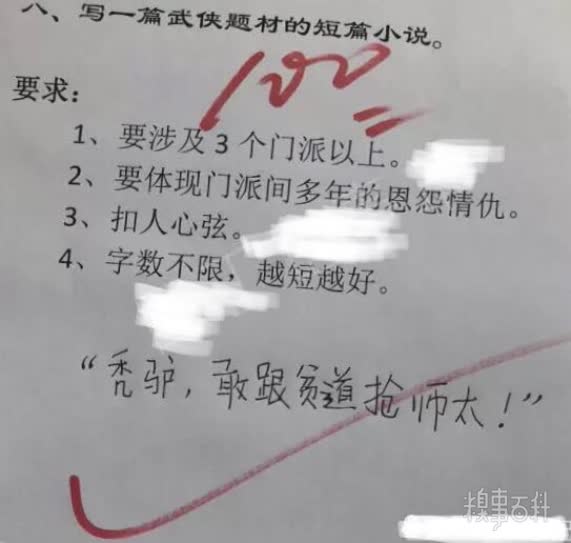 八、写一篇武侠题材的短篇小说。
100
要求：
1、要涉及3个门派以上。
2、要体现门派间多年的恩怨情仇。
3、扣人心弦。
4、字数不限，越短越好。
“秃驴，敢跟贫道抢师太！”
糗事百科